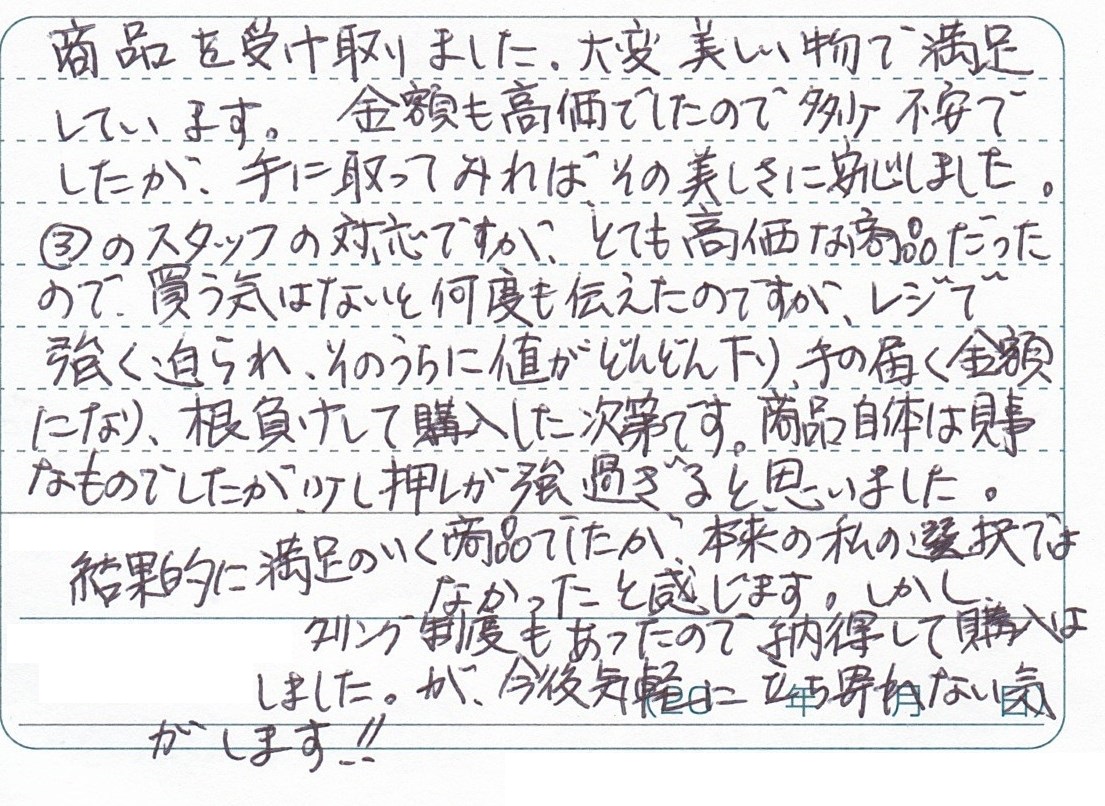 商品を受け取りました。大変美しい物で満足
しています。 金額も高価でしたので多少不安で
したが、手に取ってみればその美しさに安心しました。
③のスタッフの対応ですが、とても高価な商品だった
ので、買う気はないと何度も伝えたのですが、レジで
強く迫られ、そのうちに値がどんどん下り、手の届く金額
になり、根負けして購入した次第です。商品自体は見事
なものでしたが少し押しが強過ぎると思いました。
結果的に満足のいく商品でしたが、本来の私の選択では
なかったと感じます。しかし、
クーリング制度もあったので納得して購入は
しました。が、今後気軽に立ち寄れない気
(20 年 月 日)
がします!!